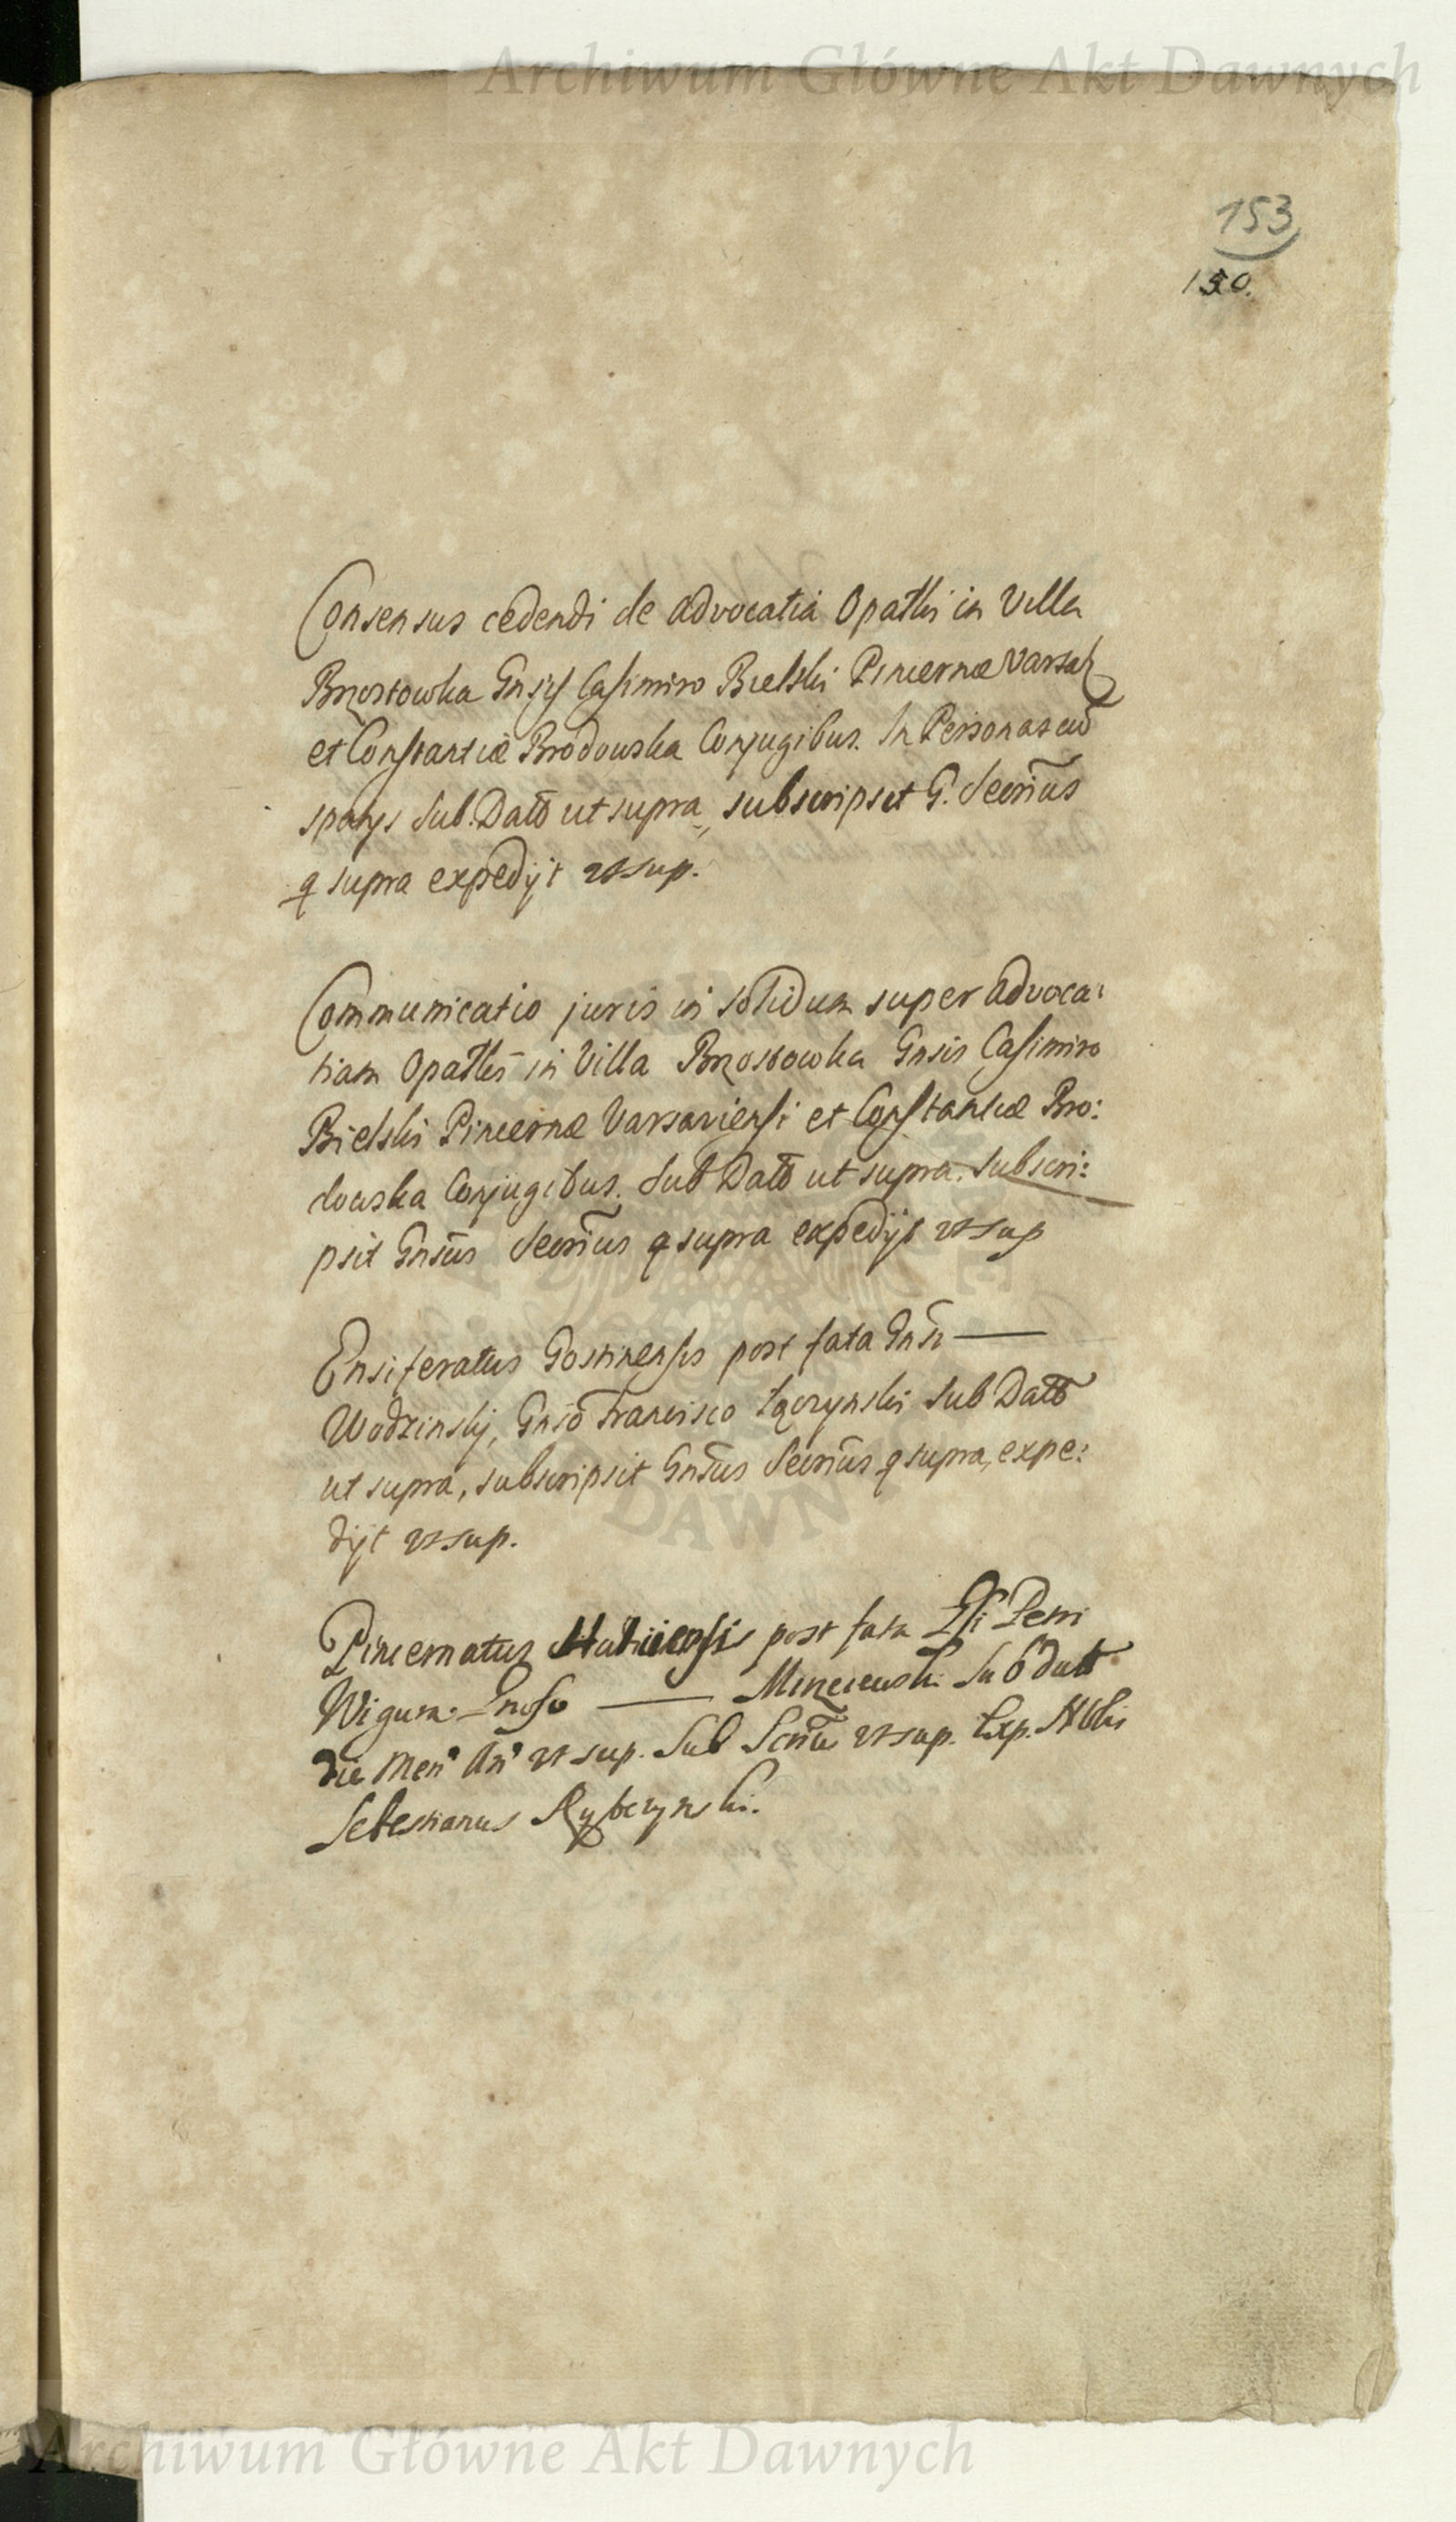 Archiwum Główne Akt Dawnych
153
150.
Consensus cedendi de advocatia Opatki in Villa
Brzostowka Gnsis Casimiro Bielski Pincernæ Varsav
et Constantiæ Brodowska Conjugibus. In Personas
sparys Sub. Datō ut supra, subscripsit G. Secrīus
q supra expedijt ut sup.
Communicatio juris in solidum super advoca:
tiam Opatki in Villa Brzostowka Gnsis Casimiro
Bielski Pincernæ Varsaviensi et Constantiæ Bro:
dowska Conjugibus. Sub Datō ut supra. Subscri:
psit Gnsūs Secrīus q supra expedijt ut sup
Ensiferatus Gostinensis post fata Gnsi —
Wodzinskj, Gnsō Francisco Łączynski Sub Datō
ut supra, subscripsit Gnsūs Secrīus q supra, expe:
dijt ut sup.
Pincernatus post fata Petri
Wigura — sub datt
die Men An ut sup. Sub ut sup. Exp. Nblis
Sebestianus Rybczynski.
DAWN
Archiwum Główne Akt Dawnych